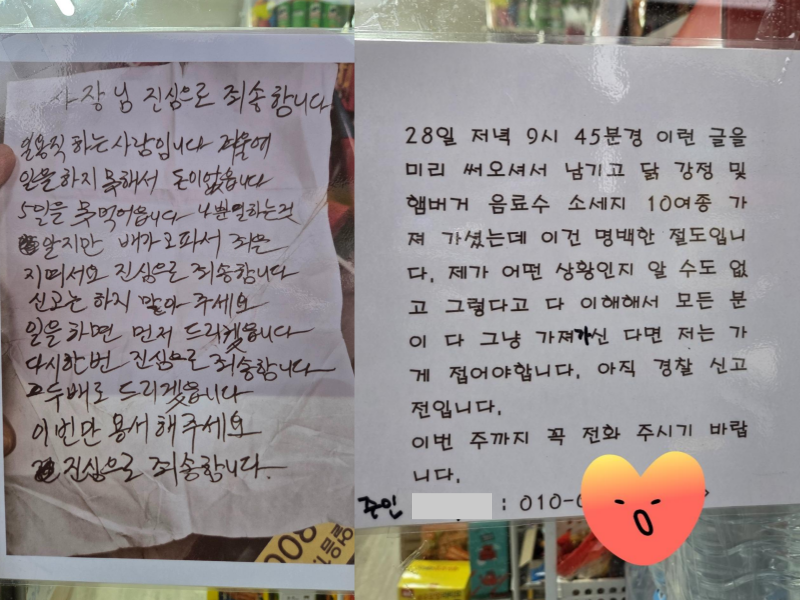 사장님 진심으로 죄송합니다
일용직 하는 사람입니다 겨울에
일을 하지 못해서 돈이 없습니다
5일을 못 먹어습니다 나쁜 일 하는 것
알지만 배가 고파서 죄를
지며서요 진심으로 죄송합니다
신고는 하지 말아 주세요
일을 하면 먼저 드리겠습니다
다시 한번 진심으로 죄송합니다
두배로 드리겠습니다
이번만 용서 해주세요
진심으로 죄송합니다.
28일 저녁 9시 45분경 이런 글을
미리 써오셔서 남기고 닭 강정 및
햄버거 음료수 소세지 10여종 가
져 가셨는데 이건 명백한 절도입니
다. 제가 어떤 상황인지 알 수도 없
고 그렇다고 다 이해해서 모든 분
이 다 그냥 가져가신 다면 저는 가
게 접어야합니다. 아직 경찰 신고
전입니다.
이번 주까지 꼭 전화 주시기 바랍
니다.
주인 : 010-
800